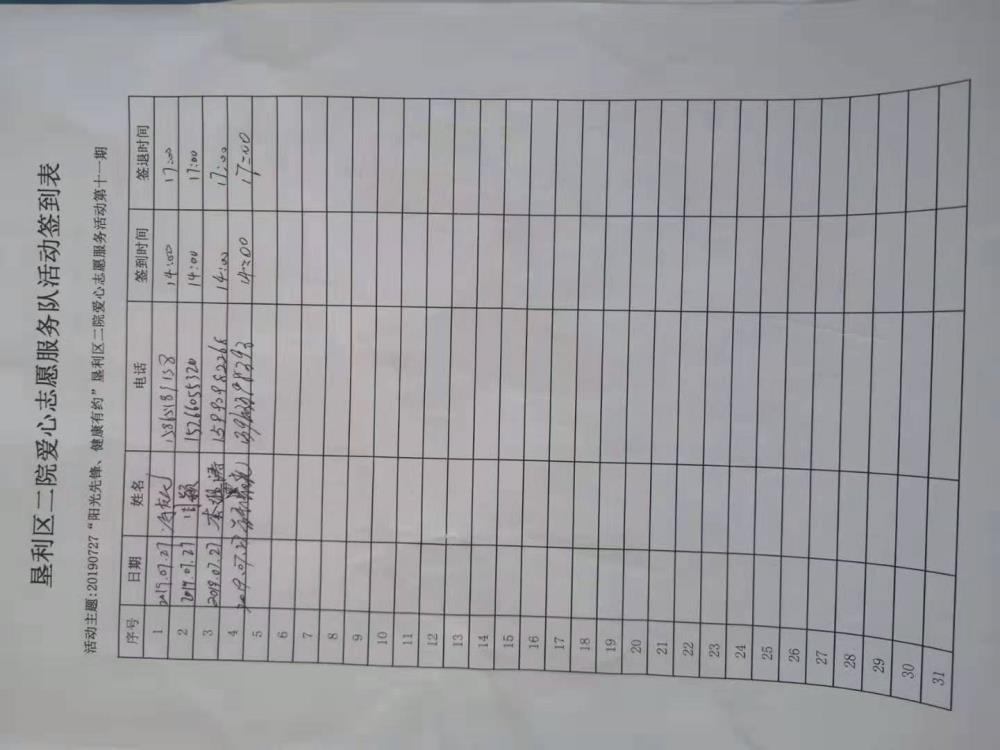 垦利区二院爱心志愿服务队活动签到表
活动主题:20190727“阳光先锋、健康有约”垦利区二院爱心志愿服务活动第十一期
序号 日期 姓名 电话 签到时间 签退时间
1 2019.07.27 14:00 17:00
2 2019.07.27 15266055320 14:00 17:00
3 2019.07.27 李 涛 15993982268 14:00 17:00
4 2019.07.27 14:00 17:00
5
6
7
8
9
10
11
12
13
14
15
16
17
18
19
20
21
22
23
24
25
26
27
28
29
30
31